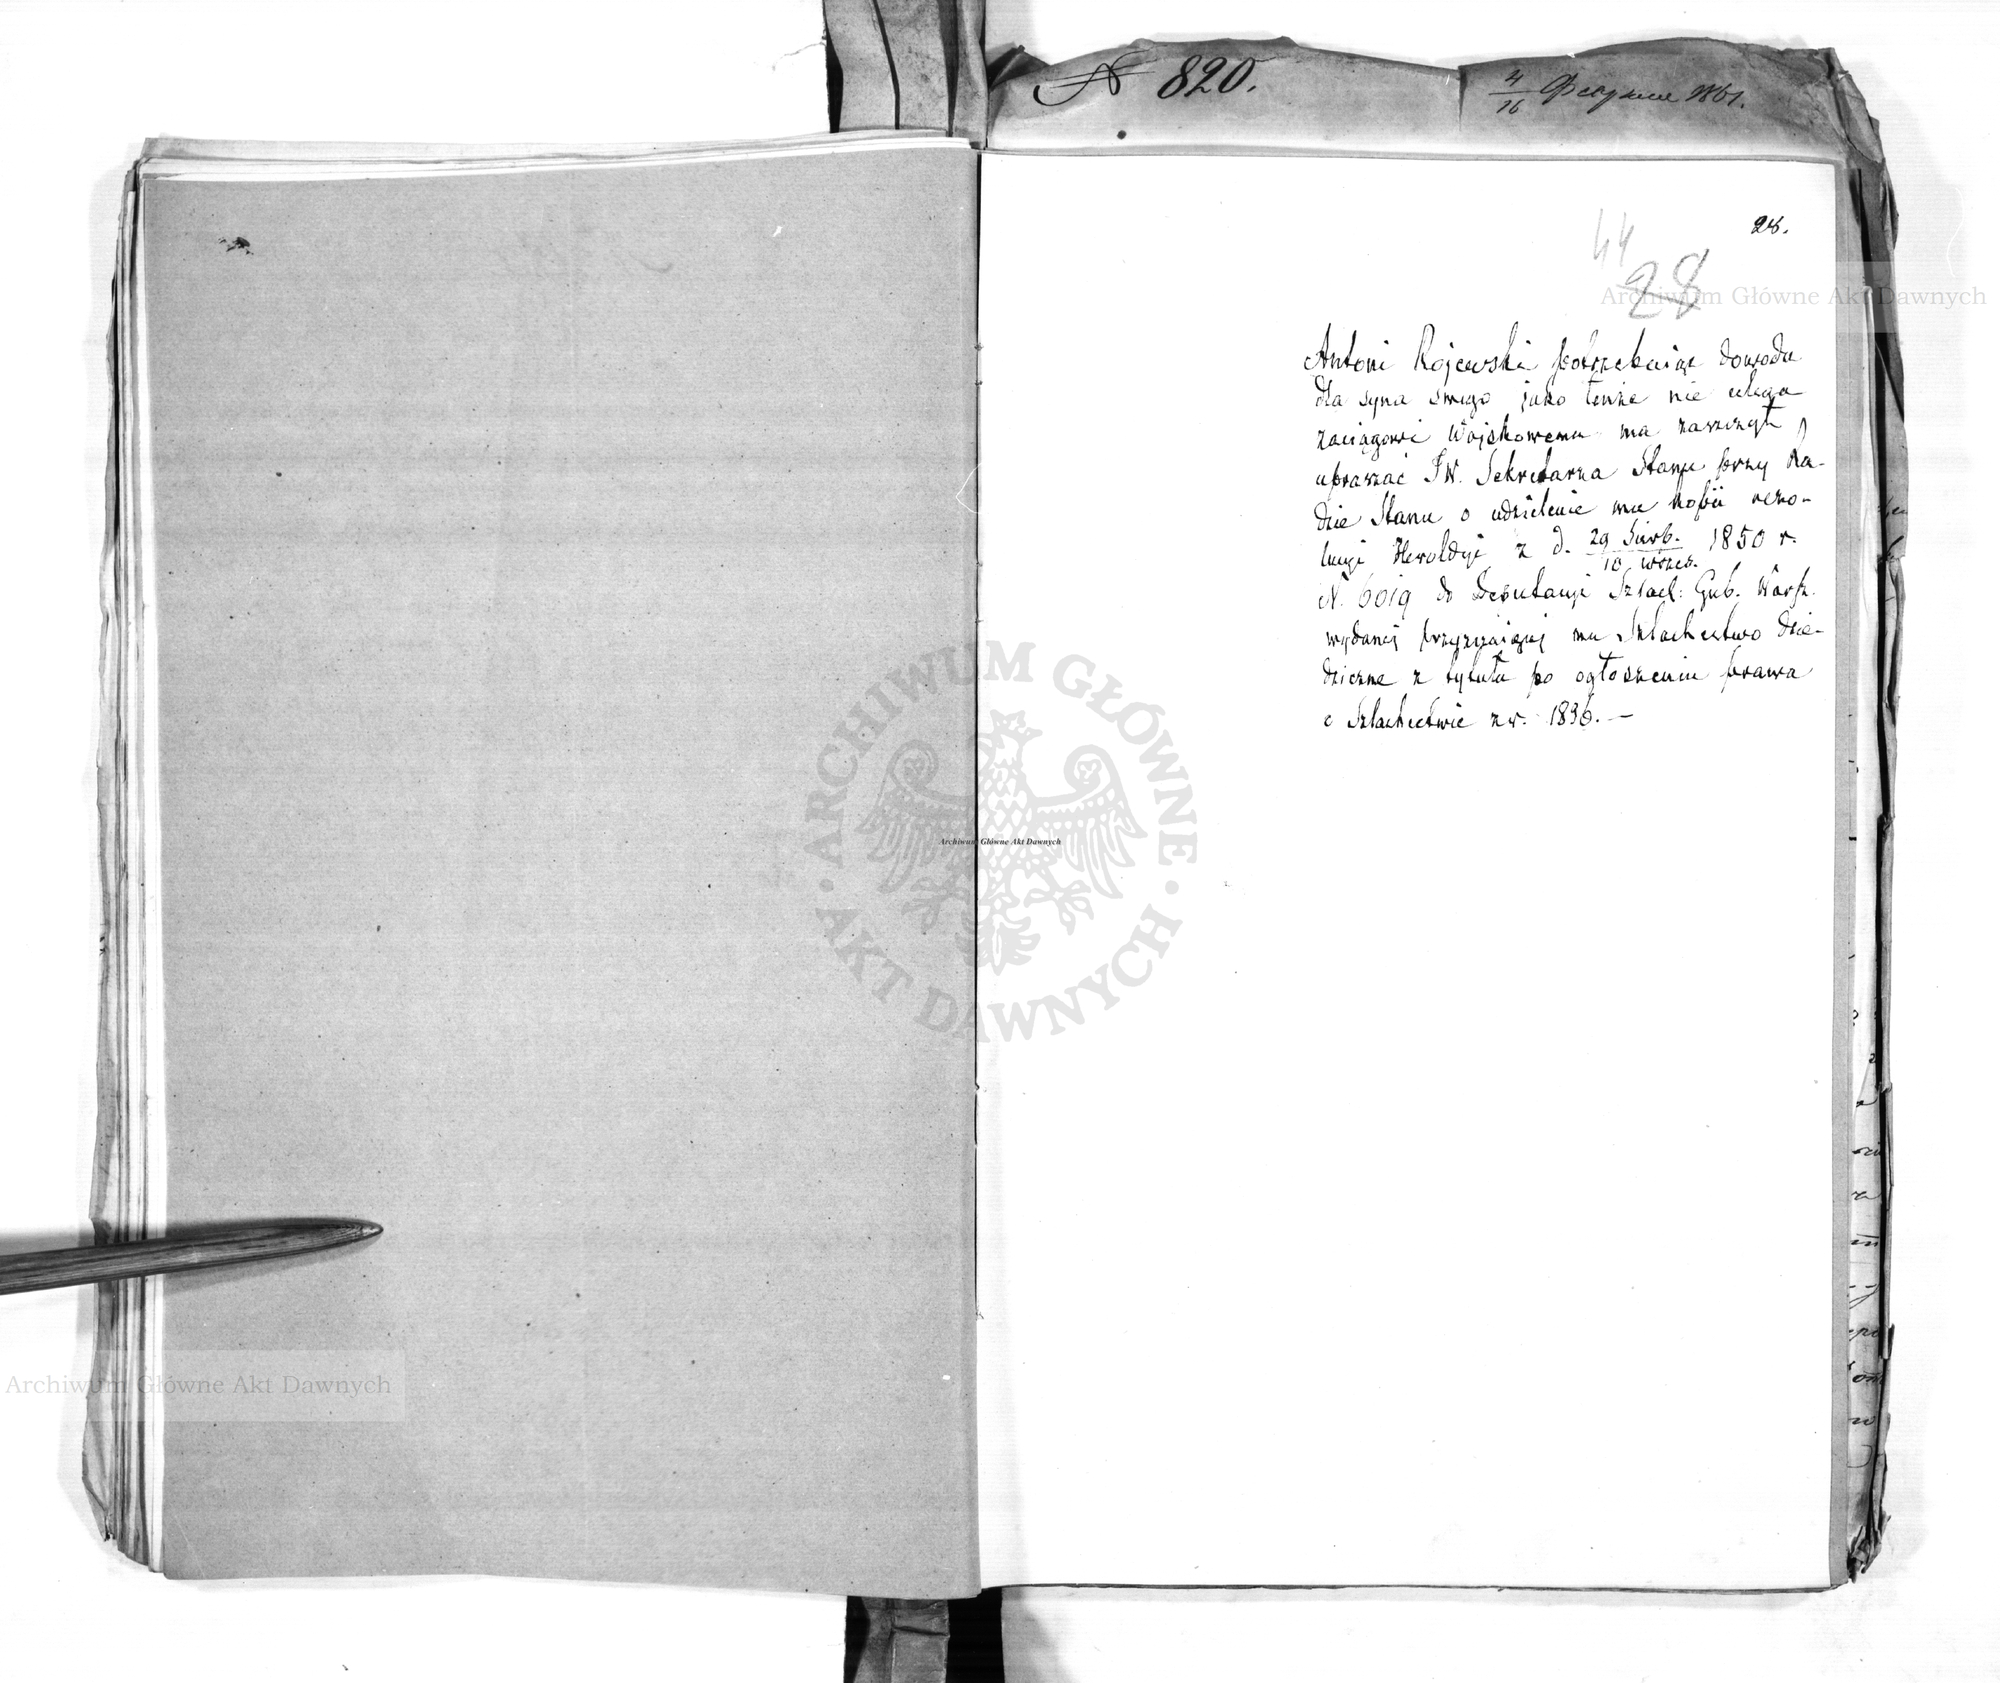 N 820.
4/16 Февраля 1861.
28.
44
28
Antoni Rojewski potrzebując dowodu
dla syna swego jako tenże nie ulega
zaciągowi wojskowemu ma zaszczyt
upraszać JW. Sekretarza Stanu przy Ra-
dzie Stanu o udzielenie mu kopii rezo-
lucyi Heroldyi z d. 29 Sierb./10 wrzes. 1850 r.
N. 6019 do Deputacyi Szlach: Gub. Warsz.
wydanej przyznaiącej mu Szlachectwo dzie-
dziczne z tytułu po ogłoszeniu prawa
o Szlachectwie z r. 1836. —
Archiwum Główne Akt Dawnych
ARCHIWUM GŁÓWNE
AKT DAWNYCH
Archiwum Główne Akt Dawnych
Archiwum Główne Akt Dawnych